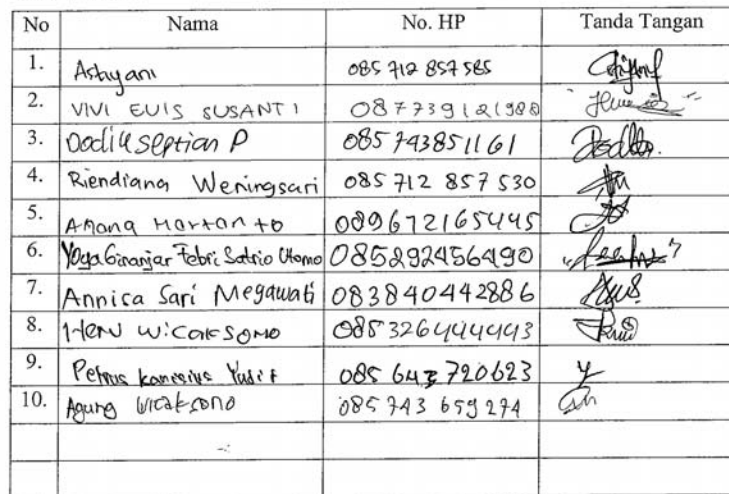 No Nama No. HP Tanda Tangan
1. Ashyani 085 712 857 585
2. VIVI EUIS SUSANTI 087739121988
3. Dodik Septian P 085743851161
4. Riendiana Weningsari 085 712 857 530
5. Anang Hartanto 089672165445
6. Yoga Ginanjar Febri Satrio Utomo 085292456490
7. Annisa Sari Megawati 083840442886
8. Heru Wicaksono 085326444443
9. Petrus kanisius Yudi 085 643 720623
10. Agung Wicaksono 085 743 659 274